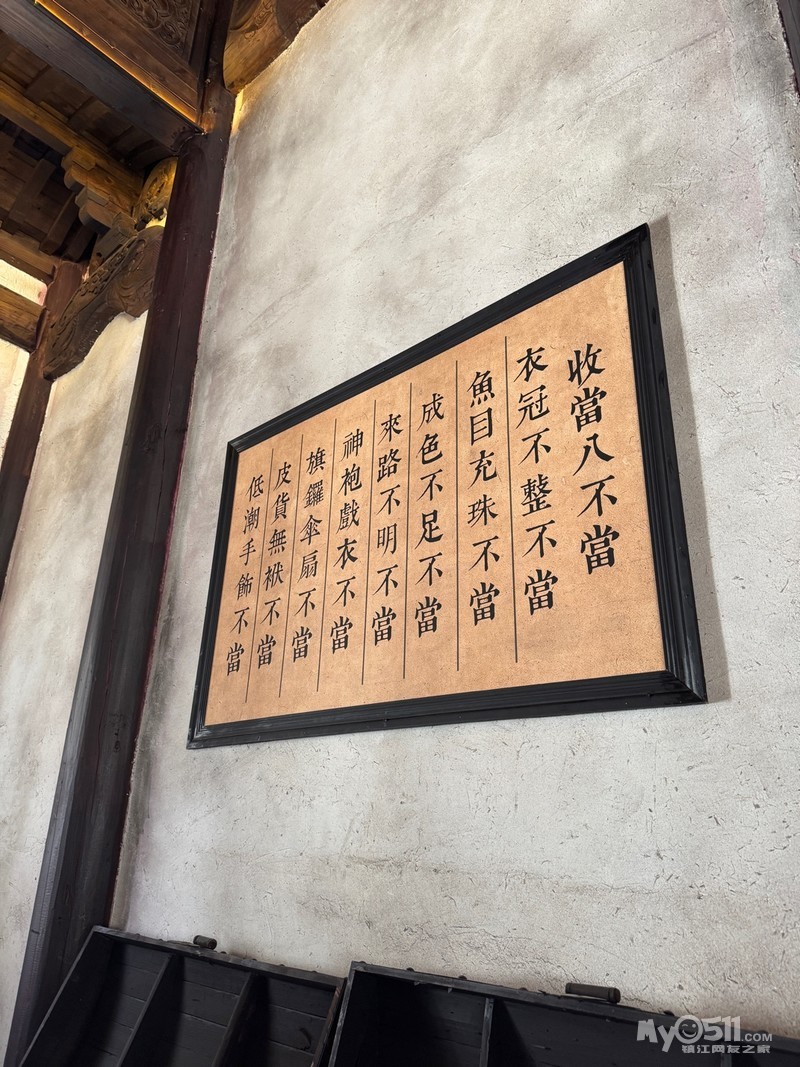 收當八不當
衣冠不整不當
魚目充珠不當
成色不足不當
來路不明不當
神袍戲衣不當
旗鑼傘扇不當
皮貨無袱不當
低潮手飾不當
My0511.COM
镇江网友之家